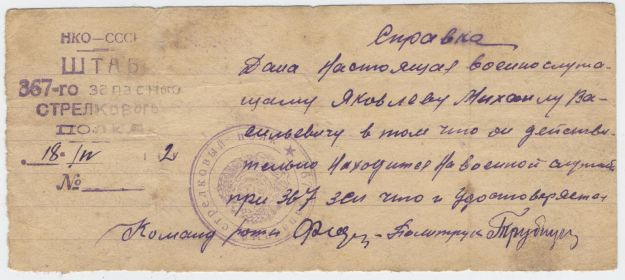 НКО—СССР
ШТАБ
367-го запасного
СТРЕЛКОВОГО
ПОЛКА
18 IV 2
№
Справка
Дана настоящая военнослужа-
щому Яковлеву Михаилу Ва-
сильевичу в том что он действи-
тельно находится на военной службе
при 367 зсп что и удостоверяется
Команд роты Политрук
СТРЕЛКОВЫЙ ПОЛК